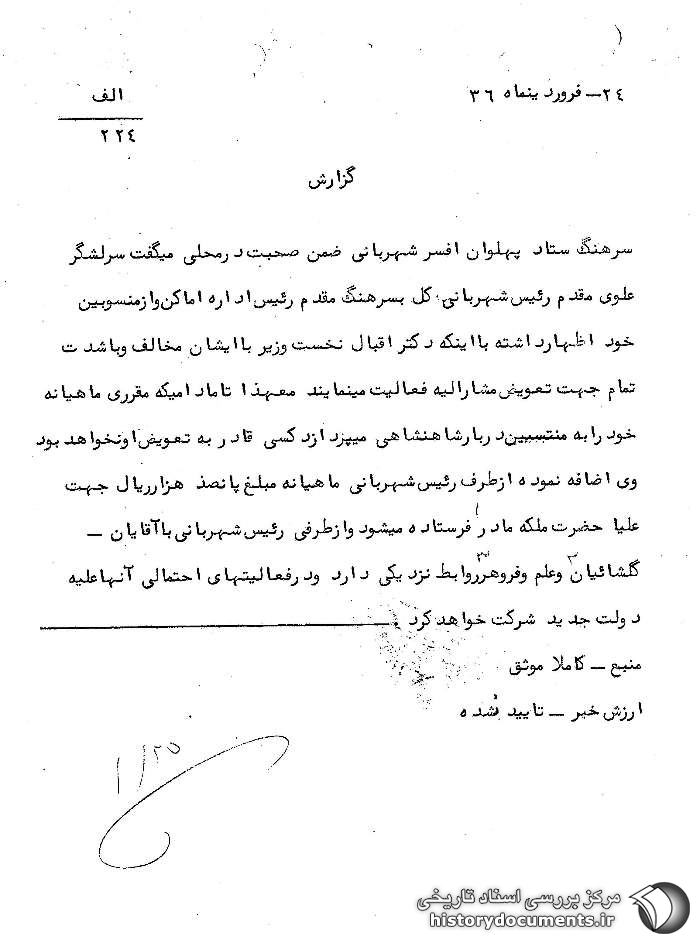 ۲۴ــ فروردینماه ۳۶
الف
۲۲٤
گزارش
سرهنگ ستاد پهلوان افسر شهربانی ضمن صحبت درمحلی میگفت سرلشگر
علوی مقدم رئیس شهربانی کل بسرهنگ مقدم رئیس اداره اماکن وازمنسوبین
خود اظهارداشته بااینکه دکتر اقبال نخست وزیر باایشان مخالف وباشدت
تمام جهت تعویض مشارالیه فعالیت مینمایند معهذا تامادامیکه مقرری ماهیانه
خود رابه منتسبین دربارشاهنشاهی میپردازدکسی قادر به تعویض اونخواهد بود
وی اضافه نموده ازطرف رئیس شهربانی ماهیانه مبلغ پانصد هزارریال جهت
علیا حضرت ملکه مادر فرستاده میشود وازطرفی رئیس شهربانی باآقایان ــ
گلشائیان وعلم وفروهر روابط نزدیکی دارد ودرفعالیتهای احتمالی آنهاعلیه
دولت جدید شرکت خواهد کرد .
منبع ــ کاملا موثق
ارزش خبر ــ تایید نشده
۱/۲۵
مرکز بررسی اسناد تاریخی
historydocuments.ir